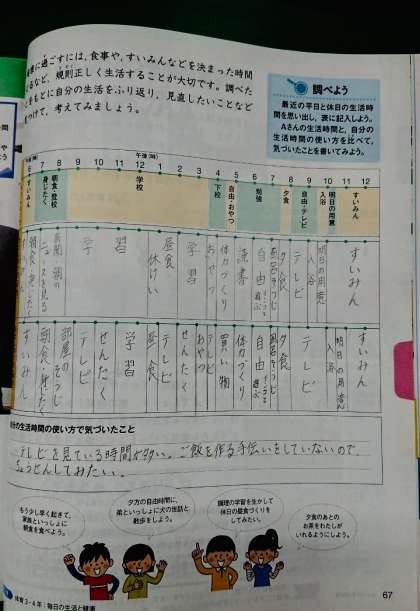 に過ごすには、食事や、すいみんなどを決まった時間
るなど、規則正しく生活することが大切です。調べた
ともに自分の生活をふり返り、見直したいことなど
つけて、考えてみましょう。
調べよう
最近の平日と休日の生活時
間を思い出し、表に記入しよう。
Aさんの生活時間と、自分の
生活時間の使い方を比べて、
気づいたことを書いてみよう。
午後(時)
6 7 8 9 10 11 12 1 2 3 4 5 6 7 8 9 10 11 12
すいみん
身じたく
朝食・登校
学校
下校
自由・おやつ
勉強
夕食
自由・テレビ
入浴
明日の用意
すいみん
学習
昼食
休けい
学習
おやつ
体力づくり
読書
自由
夕食
テレビ
入浴
明日の用意
すいみん
すいみん
部屋のそうじ
テレビ
せんたく
学習
昼食
テレビ
せんたく
おやつ
テレビ
買い物
体力づくり
自由
夕食
テレビ
入浴
明日の用意
すいみん
分の生活時間の使い方で気づいたこと
テレビを見ている時間が多い。ご飯を作る手伝いをしていないので、
ちょうせんしてみたい。
もう少し早く起きて、
家族といっしょに
朝食を食べよう。
夕方の自由時間に、
弟といっしょに犬の世話と
散歩をしよう。
調理の学習を生かして
休日の昼食づくりを
してみたい。
夕食のあとの
お茶をわたしが
いれるようにしよう。
体育3・4年:毎日の生活と健康
67